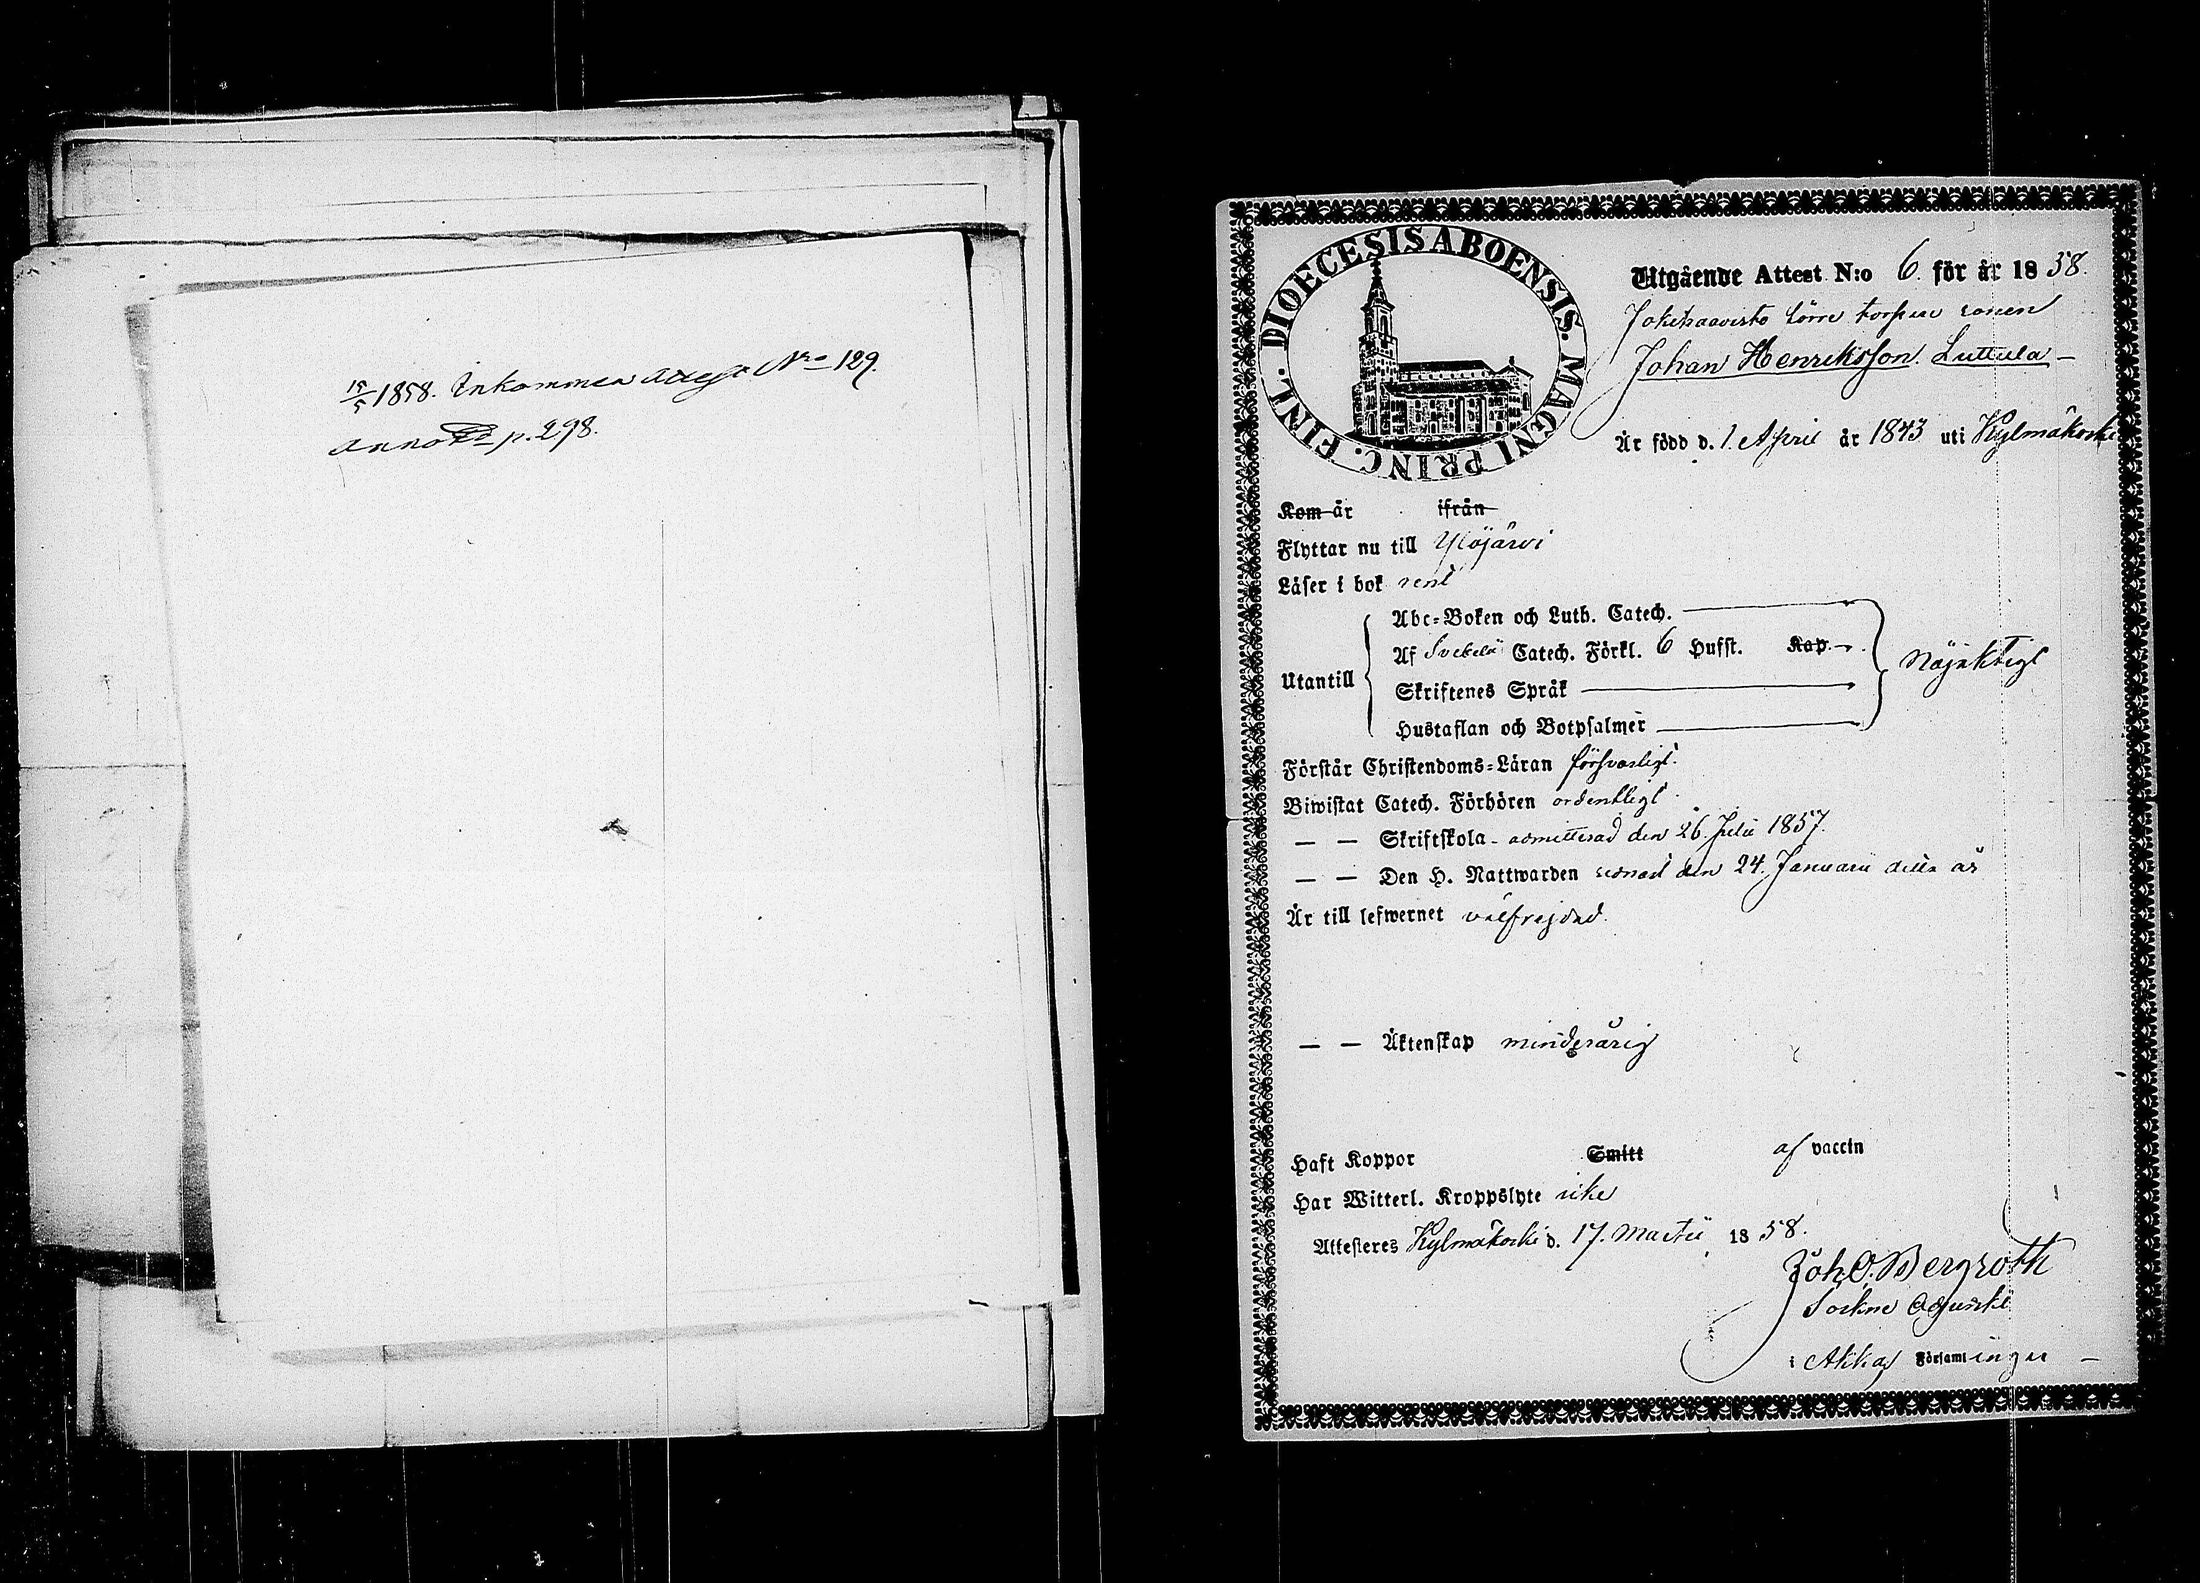 15/5 1858. Inkommen Attest No 129.
annotd p. 298.
DIOECESIS ABOENSIS. MAGNI PRINC. FINL.
Utgående Attest N:o 6. för år 1858.
torpare sonen
Johan Henriksson Luttula
Är född d. 1. April år 1843 uti Kylmäkoski
Kom år ifrån
Flyttar nu till Ylöjärvi
Läser i bok rent
Abc-Boken och Luth. Catech.
Utantill
Af Svebelii Catech. Förkl. 6 Hufst. Kap.
Nöjaktigt
Skriftenes Språk
Hustaflan och Botpsalmer
Förstår Christendoms-Läran försvarligt.
Biwistat Catech. Förhören ordentligt
— — Skriftskola admitterad den 26. Julii 1857.
— — Den H. Nattwarden senast den 24. Januarii detta år
Är till lefwernet välfrejdad.
— — Äktenskap minderårig
Haft Koppor Smitt af vaccin
Har Witterl. Kroppslyte icke
Attesteres Kylmäkoski d. 17. Martii 1858.
Joh. O. Bergroth
Sockne Adjunkt
i Akkas Församlingen —